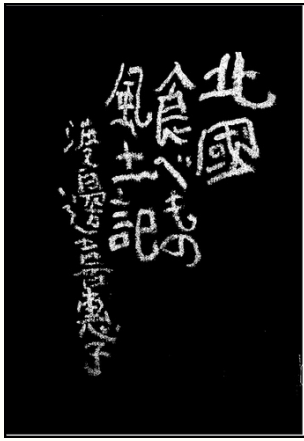 北國
食べもの
風土記
渡邊喜惠子